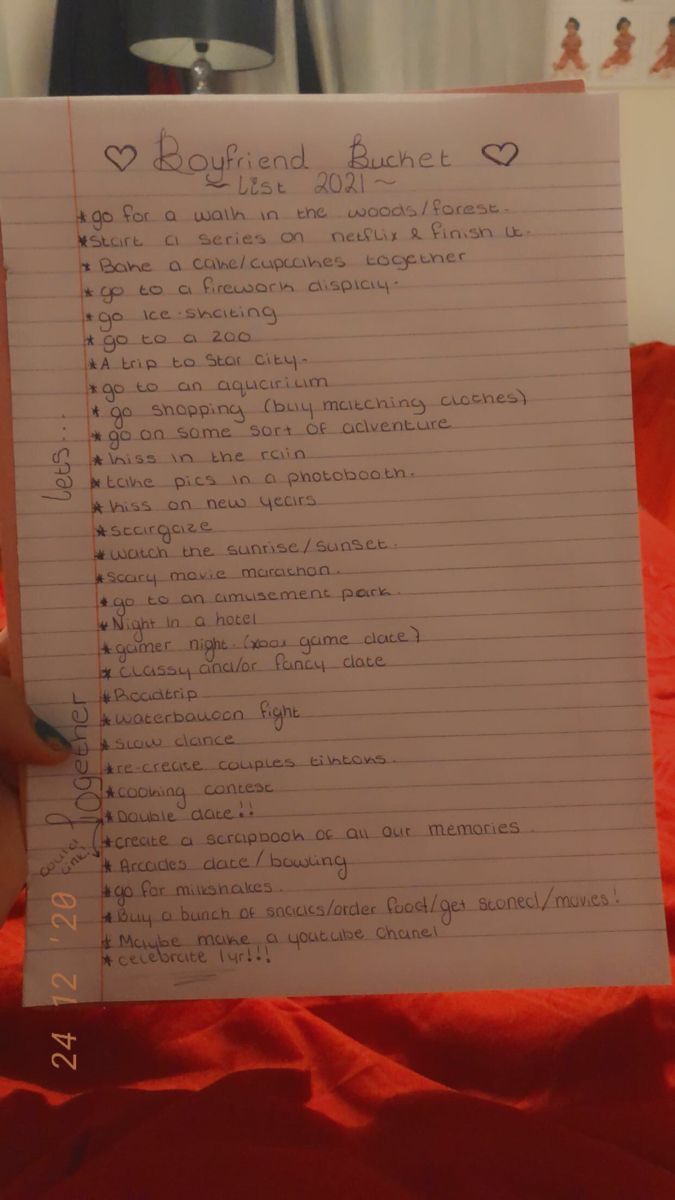 ♡ Boyfriend Bucket ♡
~ List 2021 ~
* go for a walk in the woods/forest.
* Start a series on netflix & finish it.
* Bake a cake/cupcakes together
* go to a firework display.
* go ice skating
* go to a zoo
* A trip to Star City.
* go to an aquaririum
* go shopping (buy matching clothes)
* go on some sort of adventure
* kiss in the rain
* take pics in a photobooth.
* kiss on new years
* stargaze
* watch the sunrise/sunset.
* scary movie marathon.
* go to an amusement park.
* Night in a hotel
* gamer night. (xbox game date)
* classy and/or fancy date
* Roadtrip
* waterballoon fight
* slow dance
* re-create couples tiktoks.
* cooking contest
* Double date!!
* create a scrapbook of all our memories.
* Arcades date/bowling
* go for milkshakes.
* Buy a bunch of snacks/order food/get stoned/movies!
* Maybe make a youtube chanel
* celebrate 1yr!!!
lets...
Together
24 12 '20